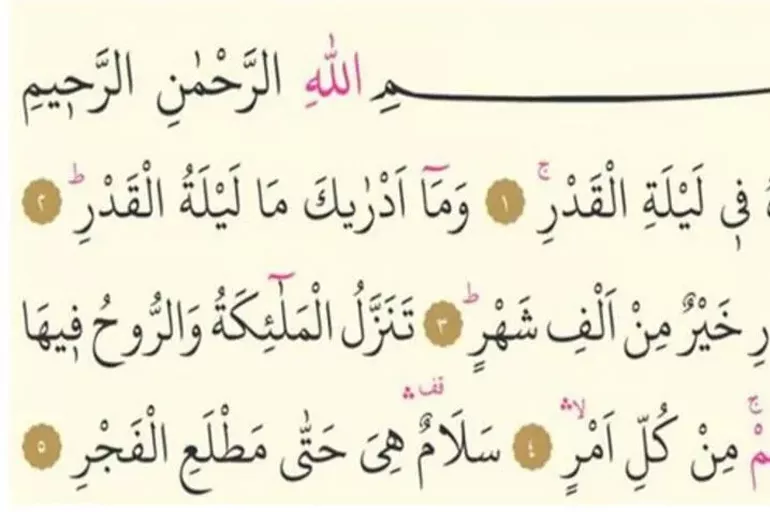 ـمِ اللّٰهِ الرَّحْمٰنِ الرَّح۪يمِ
ف۪ي لَيْلَةِ الْقَدْرِۚ ﴿١﴾ وَمَٓا اَدْرٰيكَ مَا لَيْلَةُ الْقَدْرِۜ ﴿٢﴾
خَيْرٌ مِنْ اَلْفِ شَهْرٍۜ ﴿٣﴾ تَنَزَّلُ الْمَلٰٓئِكَةُ وَالرُّوحُ ف۪يهَا
مِنْ كُلِّ اَمْرٍۙۛ ﴿٤﴾ سَلَامٌ۠ۛ هِيَ حَتّٰى مَطْلَعِ الْفَجْرِ ﴿٥﴾